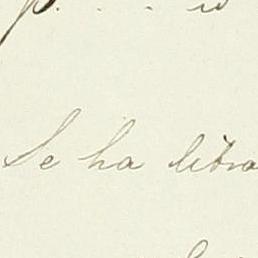 Se ha libra